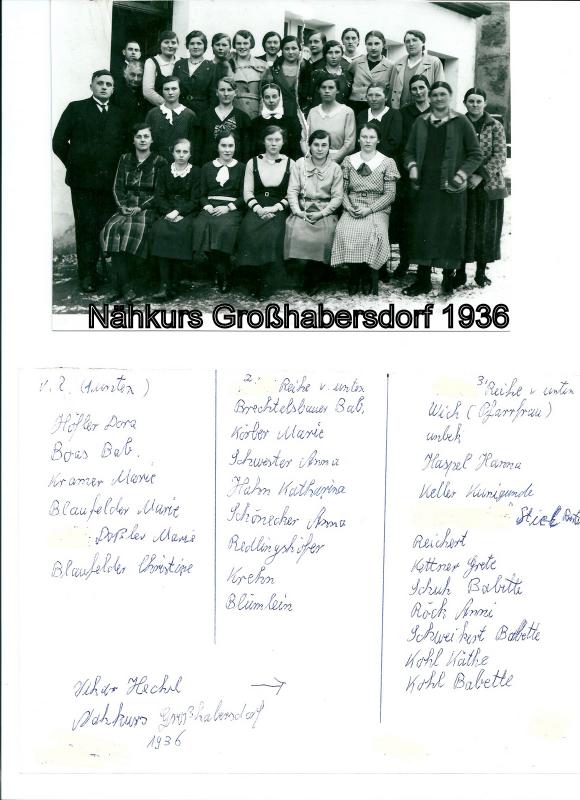 Nähkurs Großhabersdorf 1936
v. l. (unten)
Höfler Dora
Boas Bab.
Kramer Marie
Blaufelder Marie
Doßler Marie
Blaufelder Christine
2. Reihe v. unten
Brechtelsbauer Bab.
Körber Marie
Schwester Anna
Hahn Katharina
Schönecker Anna
Redlingshöfer
Krehn
Blümlein
3. Reihe v unten
Wich (Pfarrfrau)
unbek
Haspel Hanna
Keller Kunigunde
Stiel
Reichert
Kettner Grete
Schuh Babette
Röck Anni
Schweikert Babette
Kohl Käthe
Kohl Babette
Vikar Hechel
Nähkurs Großhabersdorf
1936